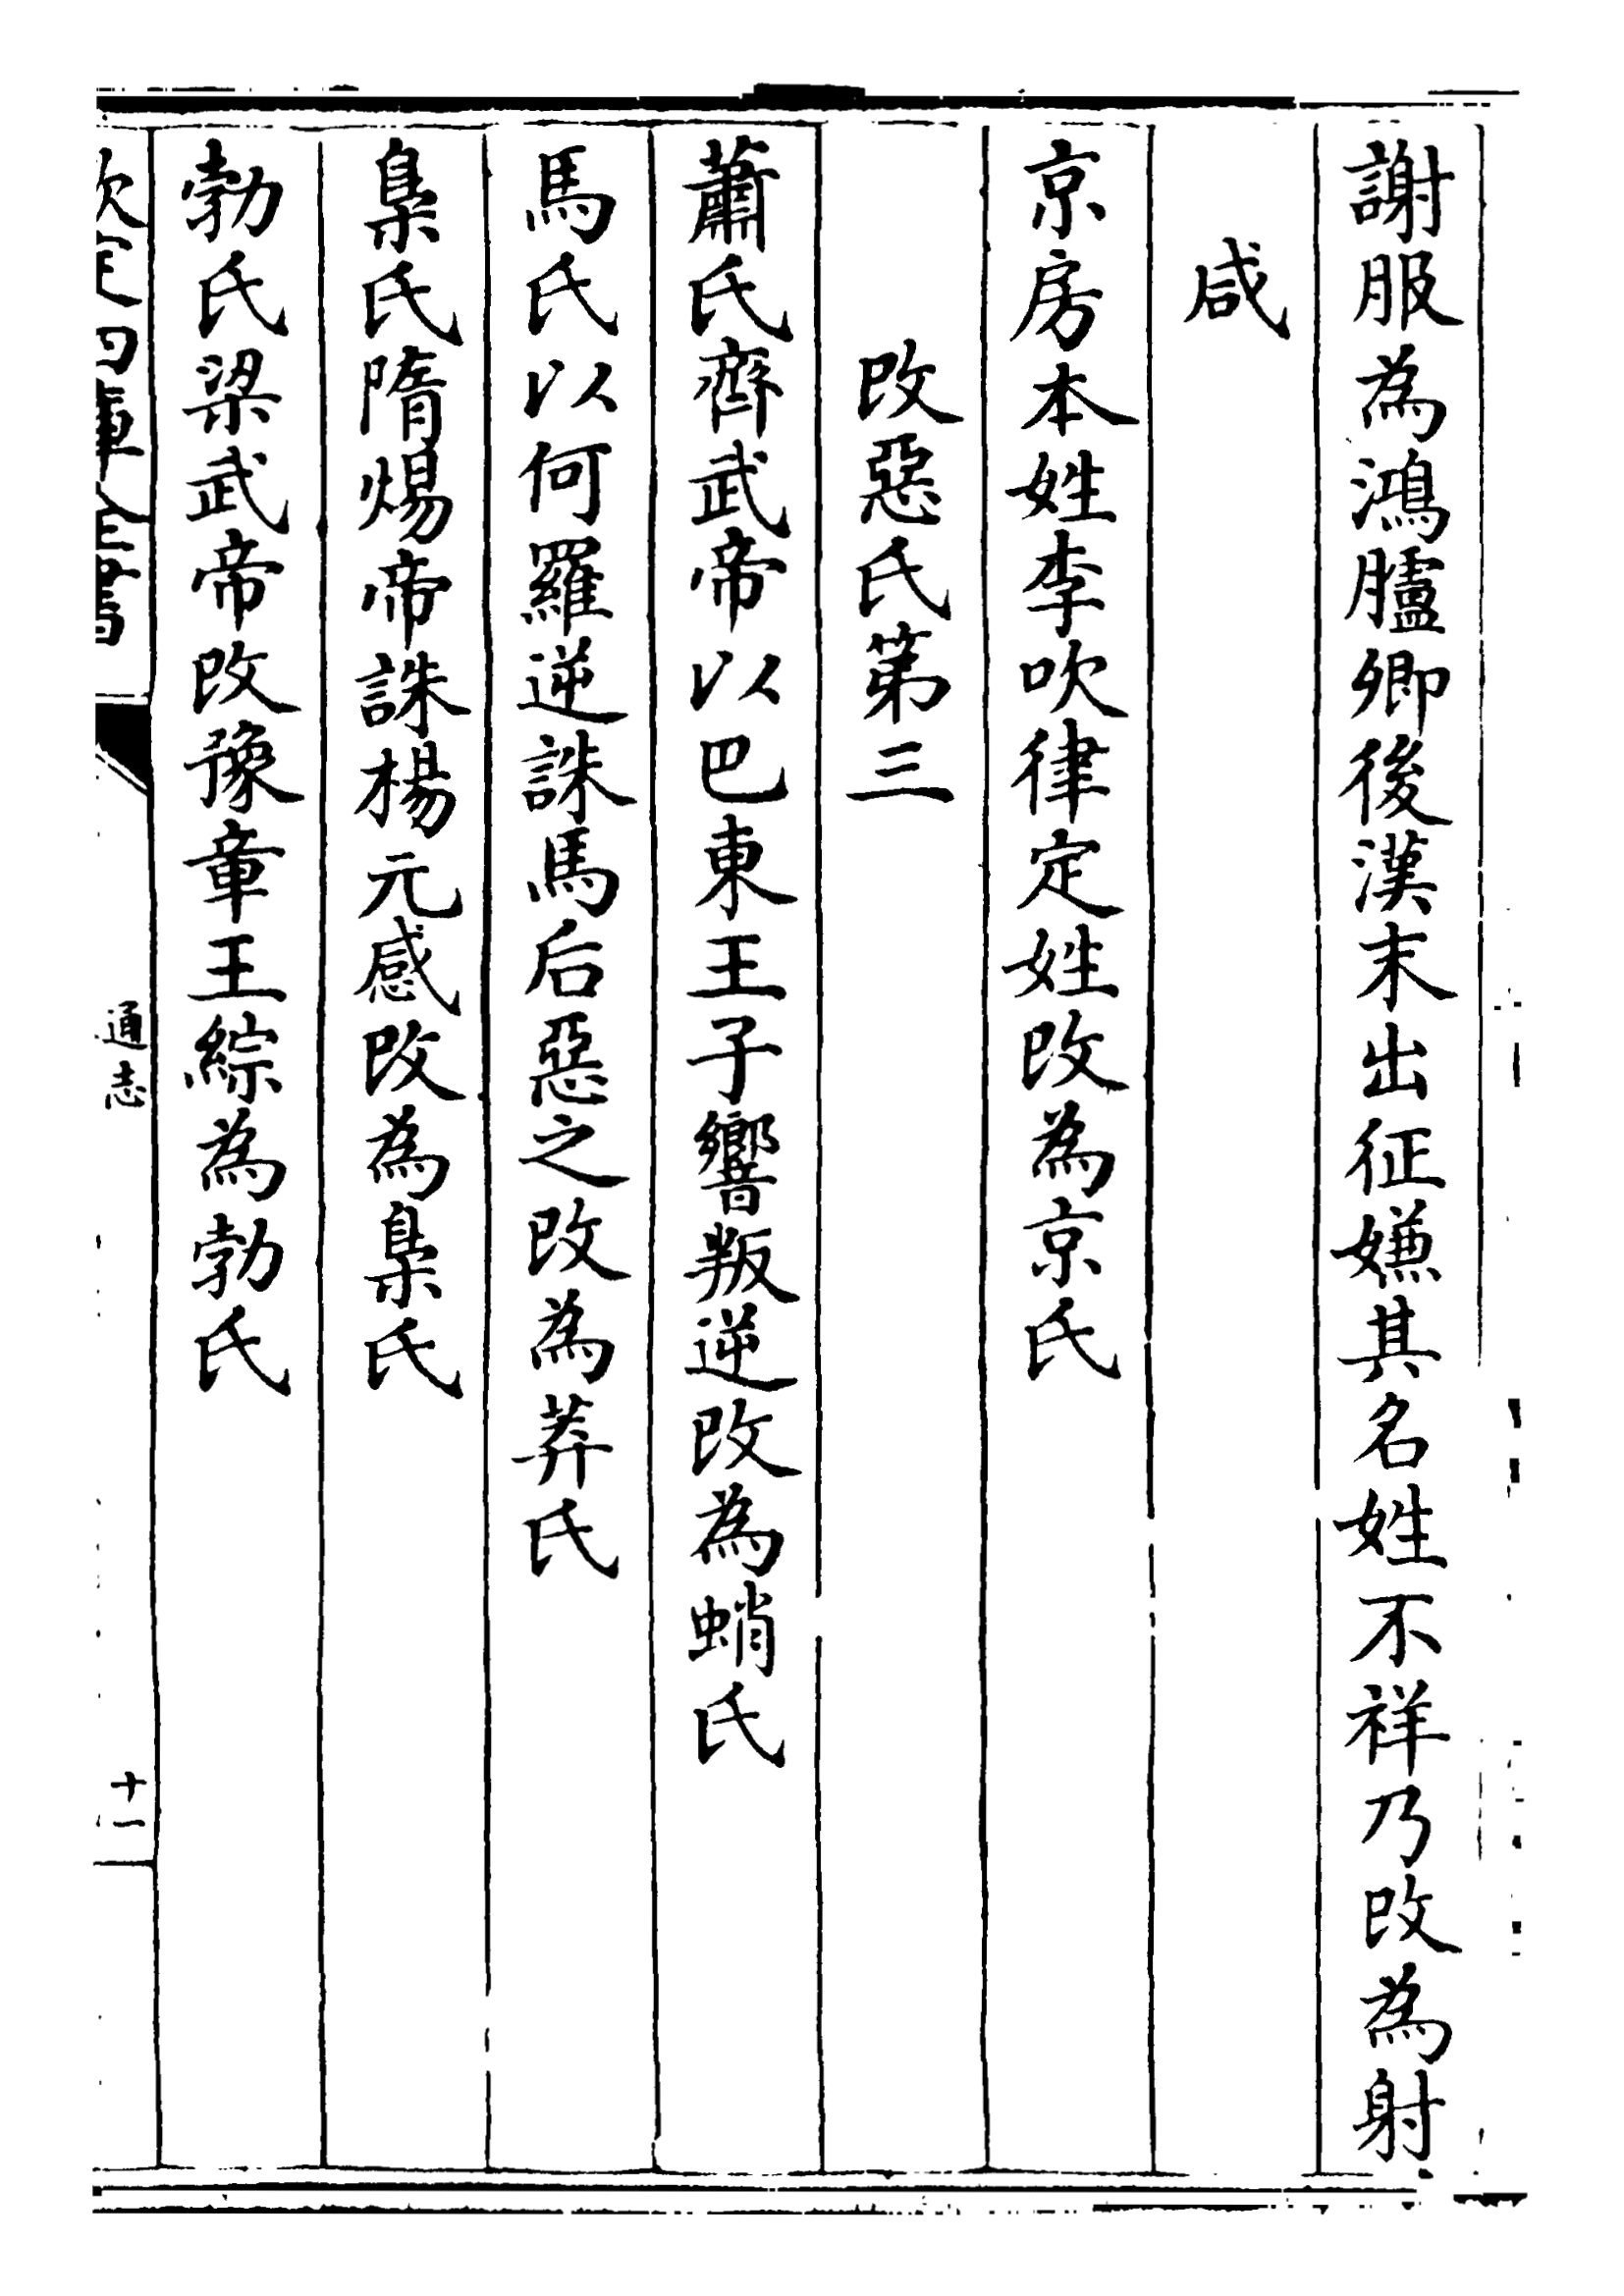 謝服為鴻臚卿後漢末出征嫌其名姓不祥乃改為射
咸
京房本姓李吹律定姓改為京氏
改惡氏第三
蕭氏齊武帝以巴東王子響叛逆改為蛸氏
馬氏以何羅逆誅馬后惡之改為莽氏
梟氏隋煬帝誅楊元感改為梟氏
勃氏梁武帝改豫章王綜為勃氏
欽定四庫全書
通志
十一